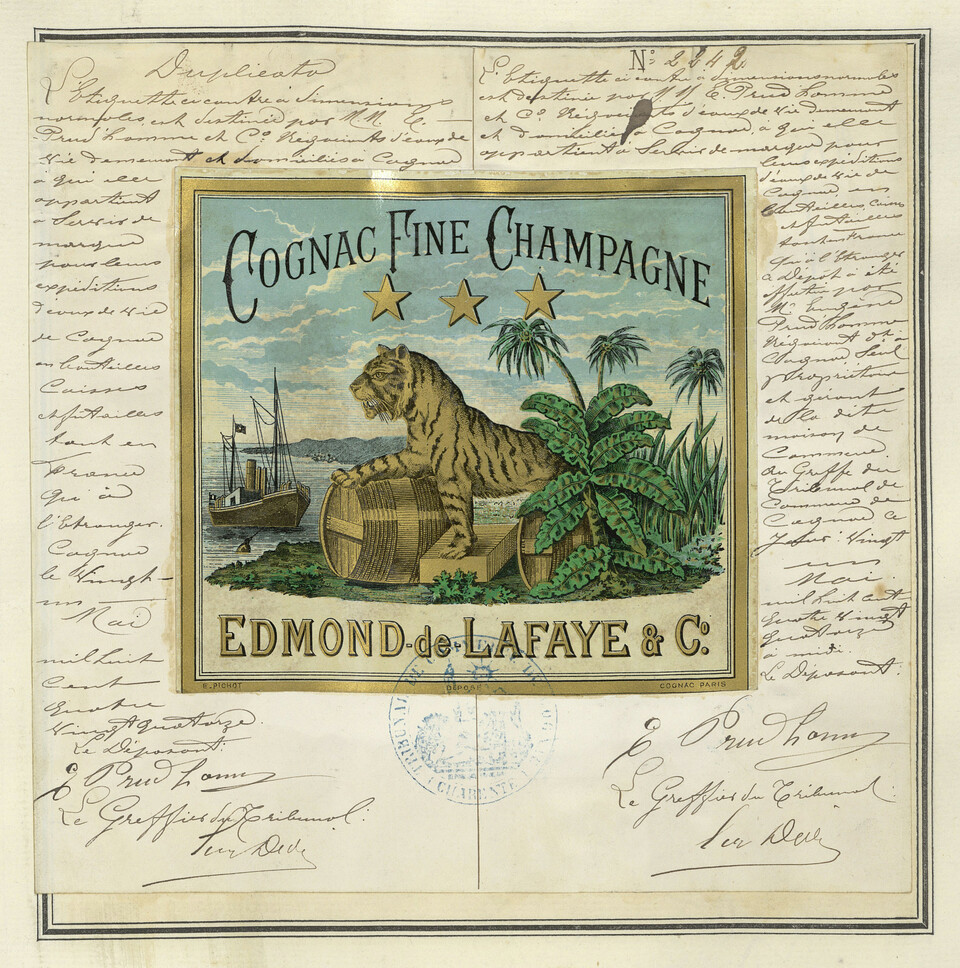 Duplicata
L'Etiquette ci contre à dimensions
normales est destinée par MM. E.
Prud'homme et Cº Négociants d'eaux de
vie demeurant et domiciliés à Cognac
à qui elle
appartient
à Servir de
marque
pour leurs
expéditions
d'eaux de vie
de Cognac
en bouteilles
Caisses
et futailles
tant en
France
qu'à
l'Etranger.
Cognac
le Vingt-
un
Mai
mil huit
Cent
quatre
Vingt quatorze.
Le Déposant:
E Prudhomme
Le Greffier du Tribunal:
Nº 2242
L'Etiquette ci contre à dimensions normales
est destinée par MM. E. Prud'homme
et Cº Négociants d'eaux de vie demeurant
et domiciliés à Cognac, à qui elle
appartient à Servir de marque pour
leurs expéditions
d'eaux de vie de
Cognac en
bouteilles, caisses
et futailles
tant en France
qu'à l'Etranger
Le Dépôt a été
effectué par
Mr. Eugène
Prudhomme
Négociant dt à
Cognac, Seul
propriétaire
et gérant
de la dite
maison de
Commerce.
Au Greffe du
Tribunal de
Commerce de
Cognac ce
jour Vingt
un
Mai
mil huit cent
quatre vingt
quatorze
à midi.
Le Déposant.
E Prudhomme
Le Greffier du Tribunal.
COGNAC FINE CHAMPAGNE
EDMOND-de-LAFAYE & Cº.
E. PICHOT
DÉPOSÉ
COGNAC PARIS
TRIBUNAL DE COMMERCE DE COGNAC
(CHARENTE)